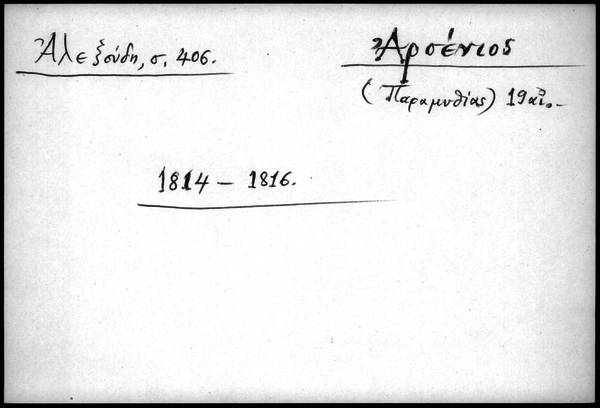 Ἀλεξούδη, σ. 406.
Ἀρσένιος
(Παραμυθίας) 19 αἰ.-
1814 - 1816.